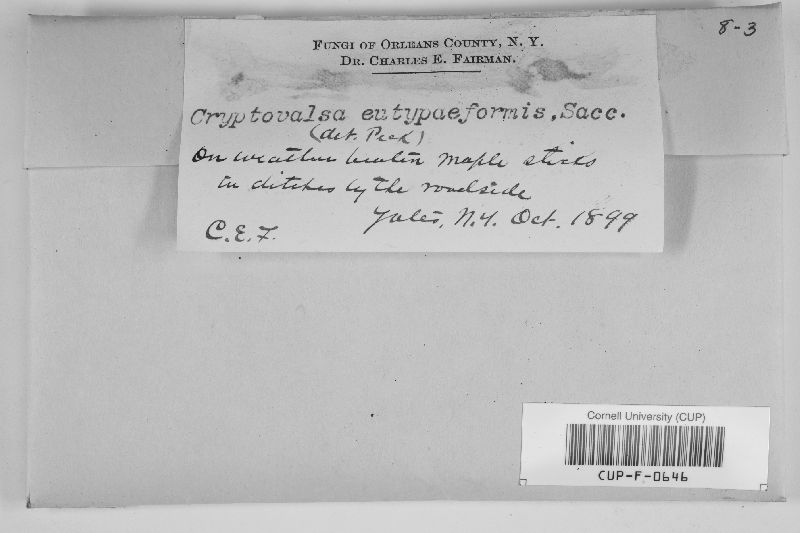 8-3
FUNGI OF ORLEANS COUNTY, N. Y.
DR. CHARLES E. FAIRMAN.
Cryptovalsa eutypaeformis, Sacc.
(det. Peck)
On weather beaten maple sticks
in ditches by the roadside
Yates, N.Y. Oct. 1899
C.E.F.
Cornell University (CUP)
CUP-F-0646